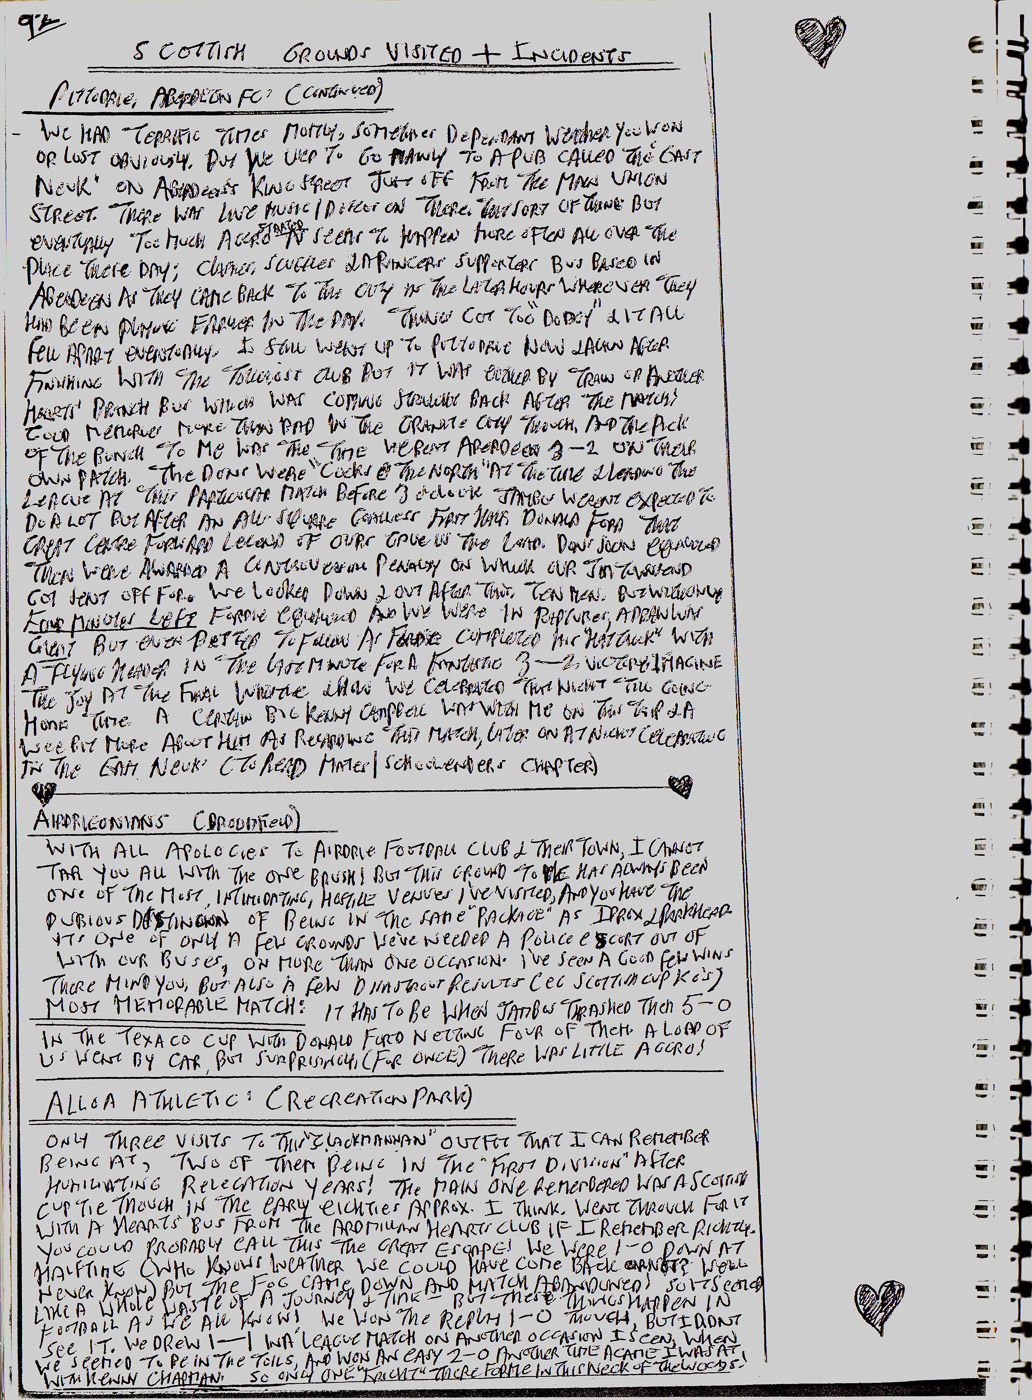 92
SCOTTISH GROUNDS VISITED + INCIDENTS
PITTODRIE, ABERDEEN FC: (CONTINUED)
WE HAD TERRIFIC TIMES MOSTLY, SOMETIMES DEPENDANT WEATHER YOU WON
OR LOST OBVIOUSLY. BUT WE USED TO GO MAINLY TO A PUB CALLED THE "EAST
NEUK" ON ABERDEENS KING STREET JUST OFF FROM THE MAIN UNION
STREET. THERE WAS LIVE MUSIC/DISCO ON THERE. THAT SORT OF THING BUT
EVENTUALLY TOO MUCH AGGRO STARTED AS SEEMS TO HAPPEN MORE OFTEN ALL OVER THE
PLACE THESE DAYS; CLASHES, SCUFFLES & A RANGERS SUPPORTERS BUS BASED IN
ABERDEEN AS THEY CAME BACK TO THE CITY IN THE LATER HOURS WHEREVER THEY
HAD BEEN PLAYING EARLIER IN THE DAY. THINGS GOT TOO "DODGY" & IT ALL
FELL APART EVENTUALLY. I STILL WENT UP TO PITTODRIE NOW & AGAIN AFTER
FINISHING WITH THE CLUB BUT IT WAS EITHER BY TRAIN OR ANOTHER
HEARTS' BRANCH BUS WHICH WAS COMING STRAIGHT BACK AFTER THE MATCH!
GOOD MEMORIES MORE THAN BAD IN THE GRANITE CITY THOUGH, AND THE PICK
OF THE BUNCH TO ME WAS THE TIME WE BEAT ABERDEEN 3-2 ON THEIR
OWN PATCH. THE DONS WERE "COCKS O THE NORTH" AT THE TIME & LEADING THE
LEAGUE AT THIS PARTICULAR MATCH BEFORE 3 O'CLOCK JAMBOS WERENT EXPECTED TO
DO A LOT BUT AFTER AN ALL-SQUARE GOALLESS FIRST HALF DONALD FORD THAT
GREAT CENTRE FORWARD LEGEND OF OURS GAVE US THE LEAD. DONS SOON EQUALISED
THEN WERE AWARDED A CONTROVERSIAL PENALTY ON WHICH OUR JIM TOWNSEND
GOT SENT OFF FOR. WE LOOKED DOWN & OUT AFTER THIS, TEN MEN. BUT WITH ONLY
FOUR MINUTES LEFT FORDIE EQUALISED AND WE WERE IN RAPTURES, A DRAW WAS
GREAT BUT EVEN BETTER TO FOLLOW AS FORDIE COMPLETED HIS "HATTRICK" WITH
A FLYING HEADER IN THE LAST MINUTE FOR A FANTASTIC 3-2 VICTORY! IMAGINE
THE JOY AT THE FINAL WHISTLE & HOW WE CELEBRATED THAT NIGHT TILL GOING
HOME TIME. A CERTAIN BIG KENNY CAMPBELL WAS WITH ME ON THIS TRIP & A
WEE BIT MORE ABOUT HIM AS REGARDING THIS MATCH, LATER ON AT NIGHT CELEBRATING
IN THE EAST NEUK: (TO READ MATES/ CHAPTER)
AIRDRIEONIANS (BROOMFIELD)
WITH ALL APOLOGIES TO AIRDRIE FOOTBALL CLUB & THEIR TOWN, I CANNOT
TAR YOU ALL WITH THE ONE BRUSH! BUT THIS GROUND TO ME HAS ALWAYS BEEN
ONE OF THE MOST, INTIMIDATING, HOSTILE VENUES I'VE VISITED, AND YOU HAVE THE
DUBIOUS DISTINCTION OF BEING IN THE SAME "PACKAGE" AS IBROX & PARKHEAD.
ITS ONE OF ONLY A FEW GROUNDS WE'VE NEEDED A POLICE ESCORT OUT OF
WITH OUR BUSES, ON MORE THAN ONE OCCASION. I'VE SEEN A GOOD FEW WINS
THERE MIND YOU, BUT ALSO A FEW DISASTROUS RESULTS (EG SCOTTISH CUP K.O'S)
MOST MEMORABLE MATCH: IT HAS TO BE WHEN JAMBOS THRASHED THEM 5-0
IN THE TEXACO CUP WITH DONALD FORD NETTING FOUR OF THEM. A LOAD OF
US WENT BY CAR, BUT SURPRISINGLY, (FOR ONCE) THERE WAS LITTLE AGGRO!
ALLOA ATHLETIC: (RECREATION PARK)
ONLY THREE VISITS TO THIS "CLACKMANNAN" OUTFIT THAT I CAN REMEMBER
BEING AT, TWO OF THEM BEING IN THE "FIRST DIVISION" AFTER
HUMILIATING RELEGATION YEARS! THE MAIN ONE REMEMBERED WAS A SCOTTISH
CUP TIE THOUGH IN THE EARLY EIGHTIES APPROX. I THINK. WENT THROUGH FOR IT
WITH A HEARTS BUS FROM THE ARDMILLAN HEARTS CLUB IF I REMEMBER RIGHTLY.
YOU COULD PROBABLY CALL THIS THE GREAT ESCAPE! WE WERE 1-0 DOWN AT
HALFTIME (WHO KNOWS WEATHER WE COULD HAVE COME BACK OR NOT? WE'LL
NEVER KNOW) BUT THE FOG CAME DOWN AND MATCH ABANDONED! SO IT SEEMED
LIKE A WHOLE WASTE OF A JOURNEY & TIME - BUT THESE THINGS HAPPEN IN
FOOTBALL AS WE ALL KNOW! WE WON THE REPLAY 1-0 THOUGH, BUT I DIDNT
SEE IT. WE DREW 1-1 IN A LEAGUE MATCH ON ANOTHER OCCASION I SEEN, WHEN
WE SEEMED TO BE IN THE TOILS, AND WON AN EASY 2-0 ANOTHER TIME AGAIN I WAS AT,
WITH KENNY CHAPMAN. SO ONLY ONE "FRIGHT" THERE FOR ME IN THIS NECK OF THE WOODS!